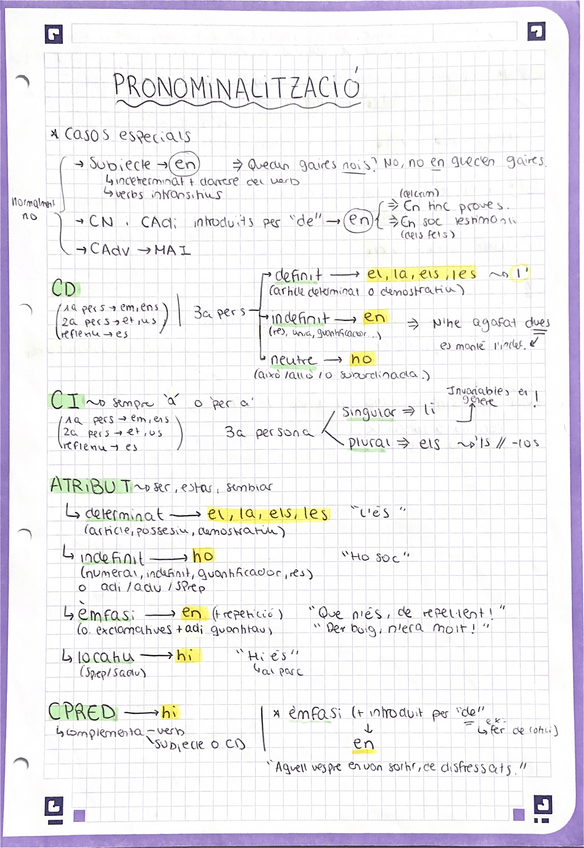 PRONOMINALITZACIÓ
* casos especials
→ Subjecte → en ⇒ Queden gaires nois? No, no en queden gaires.
↳ indeterminat + darrere del verb
↳ verbs intransitius
normalment no
→ CN i CAdj introduïts per "de" → en
(del crim)
⇒ En tinc proves.
⇒ En soc testimoni
(dels fets)
→ CAdv → MAI
CD
(1a pers → em, ens
2a pers → et, us
reflexiu → es)
3a pers
definit → el, la, els, les ~> l'
(article determinat o demostratiu)
indefinit → en ⇒ N'he agafat dues
(res, un/a, quantificador...) es manté l'indef.
neutre → ho
(això/allò/o subordinada.)
CI ~> sempre 'a' o 'per a'
(1a pers → em, ens
2a pers → et, us
reflexiu → es)
3a persona
Invariables en gènere !
singular ⇒ li
plural ⇒ els ~> 'ls // -los
ATRIBUT ~> ser, estar, semblar
↳ determinat → el, la, els, les "L'és"
(article, possesiu, demostratiu)
↳ indefinit → ho "Ho soc"
(numeral, indefinit, quantificador, res)
o adj / adv / SPrep
↳ èmfasi → en (+ repetició) "Que n'és, de repel·lent!"
(o. exclamatives + adj quantitatiu) "Per boig, n'era molt!"
↳ locatiu → hi "Hi és"
(Sprep/Sadv) ↳ al parc
CPRED → hi
↳ complementa - verb
subjecte o CD
* èmfasi (+ introduït per "de"
ex:
↳ fer de (ofici)
↓
en
"Aquell vespre en van sortir, de disfressats."